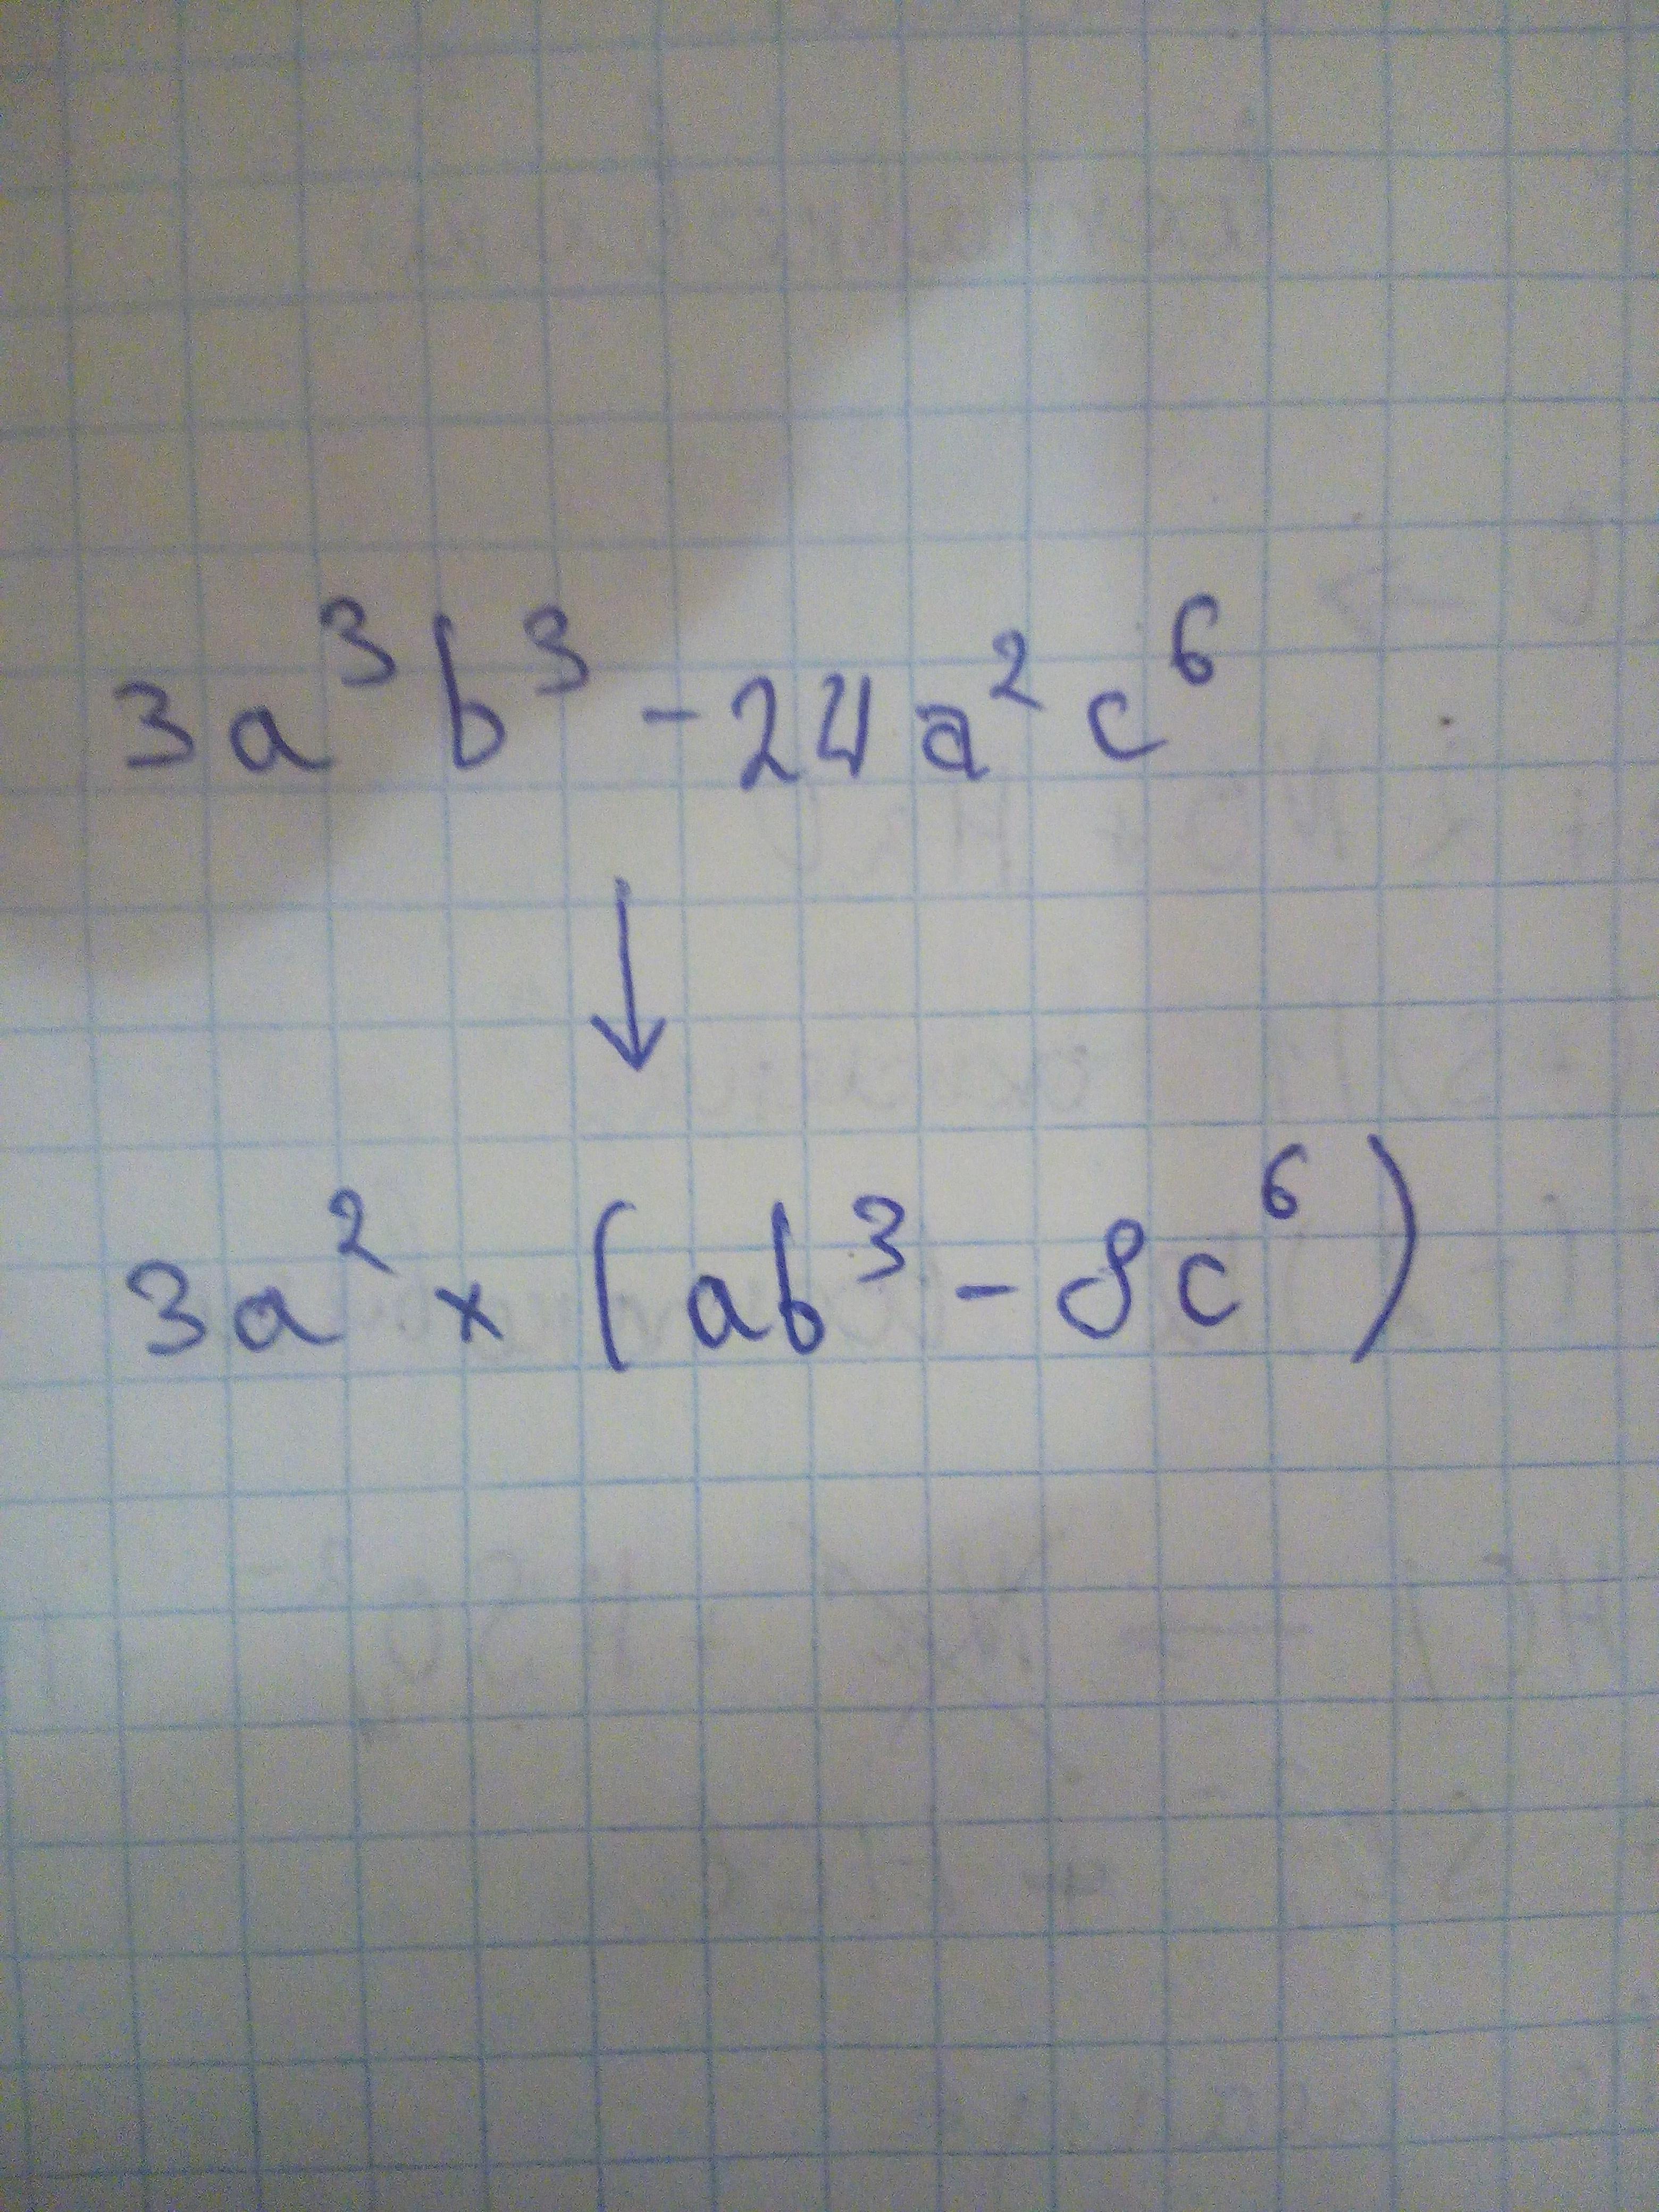 3a³b³ - 24a²c⁶
↓
3a² × (ab³ - 8c⁶)